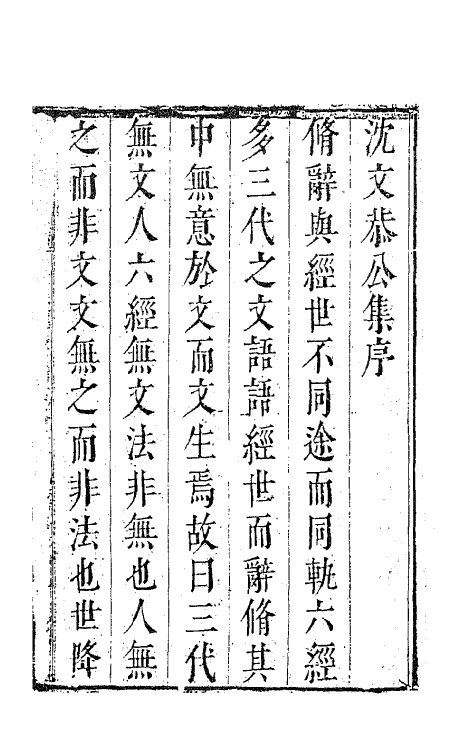 沈文恭公集序
脩辭與經世不同途而同軌六經
多三代之文語語經世而辭脩其
中無意於文而文生焉故曰三代
無文人六經無文法非無也人無
之而非文文無之而非法也世降